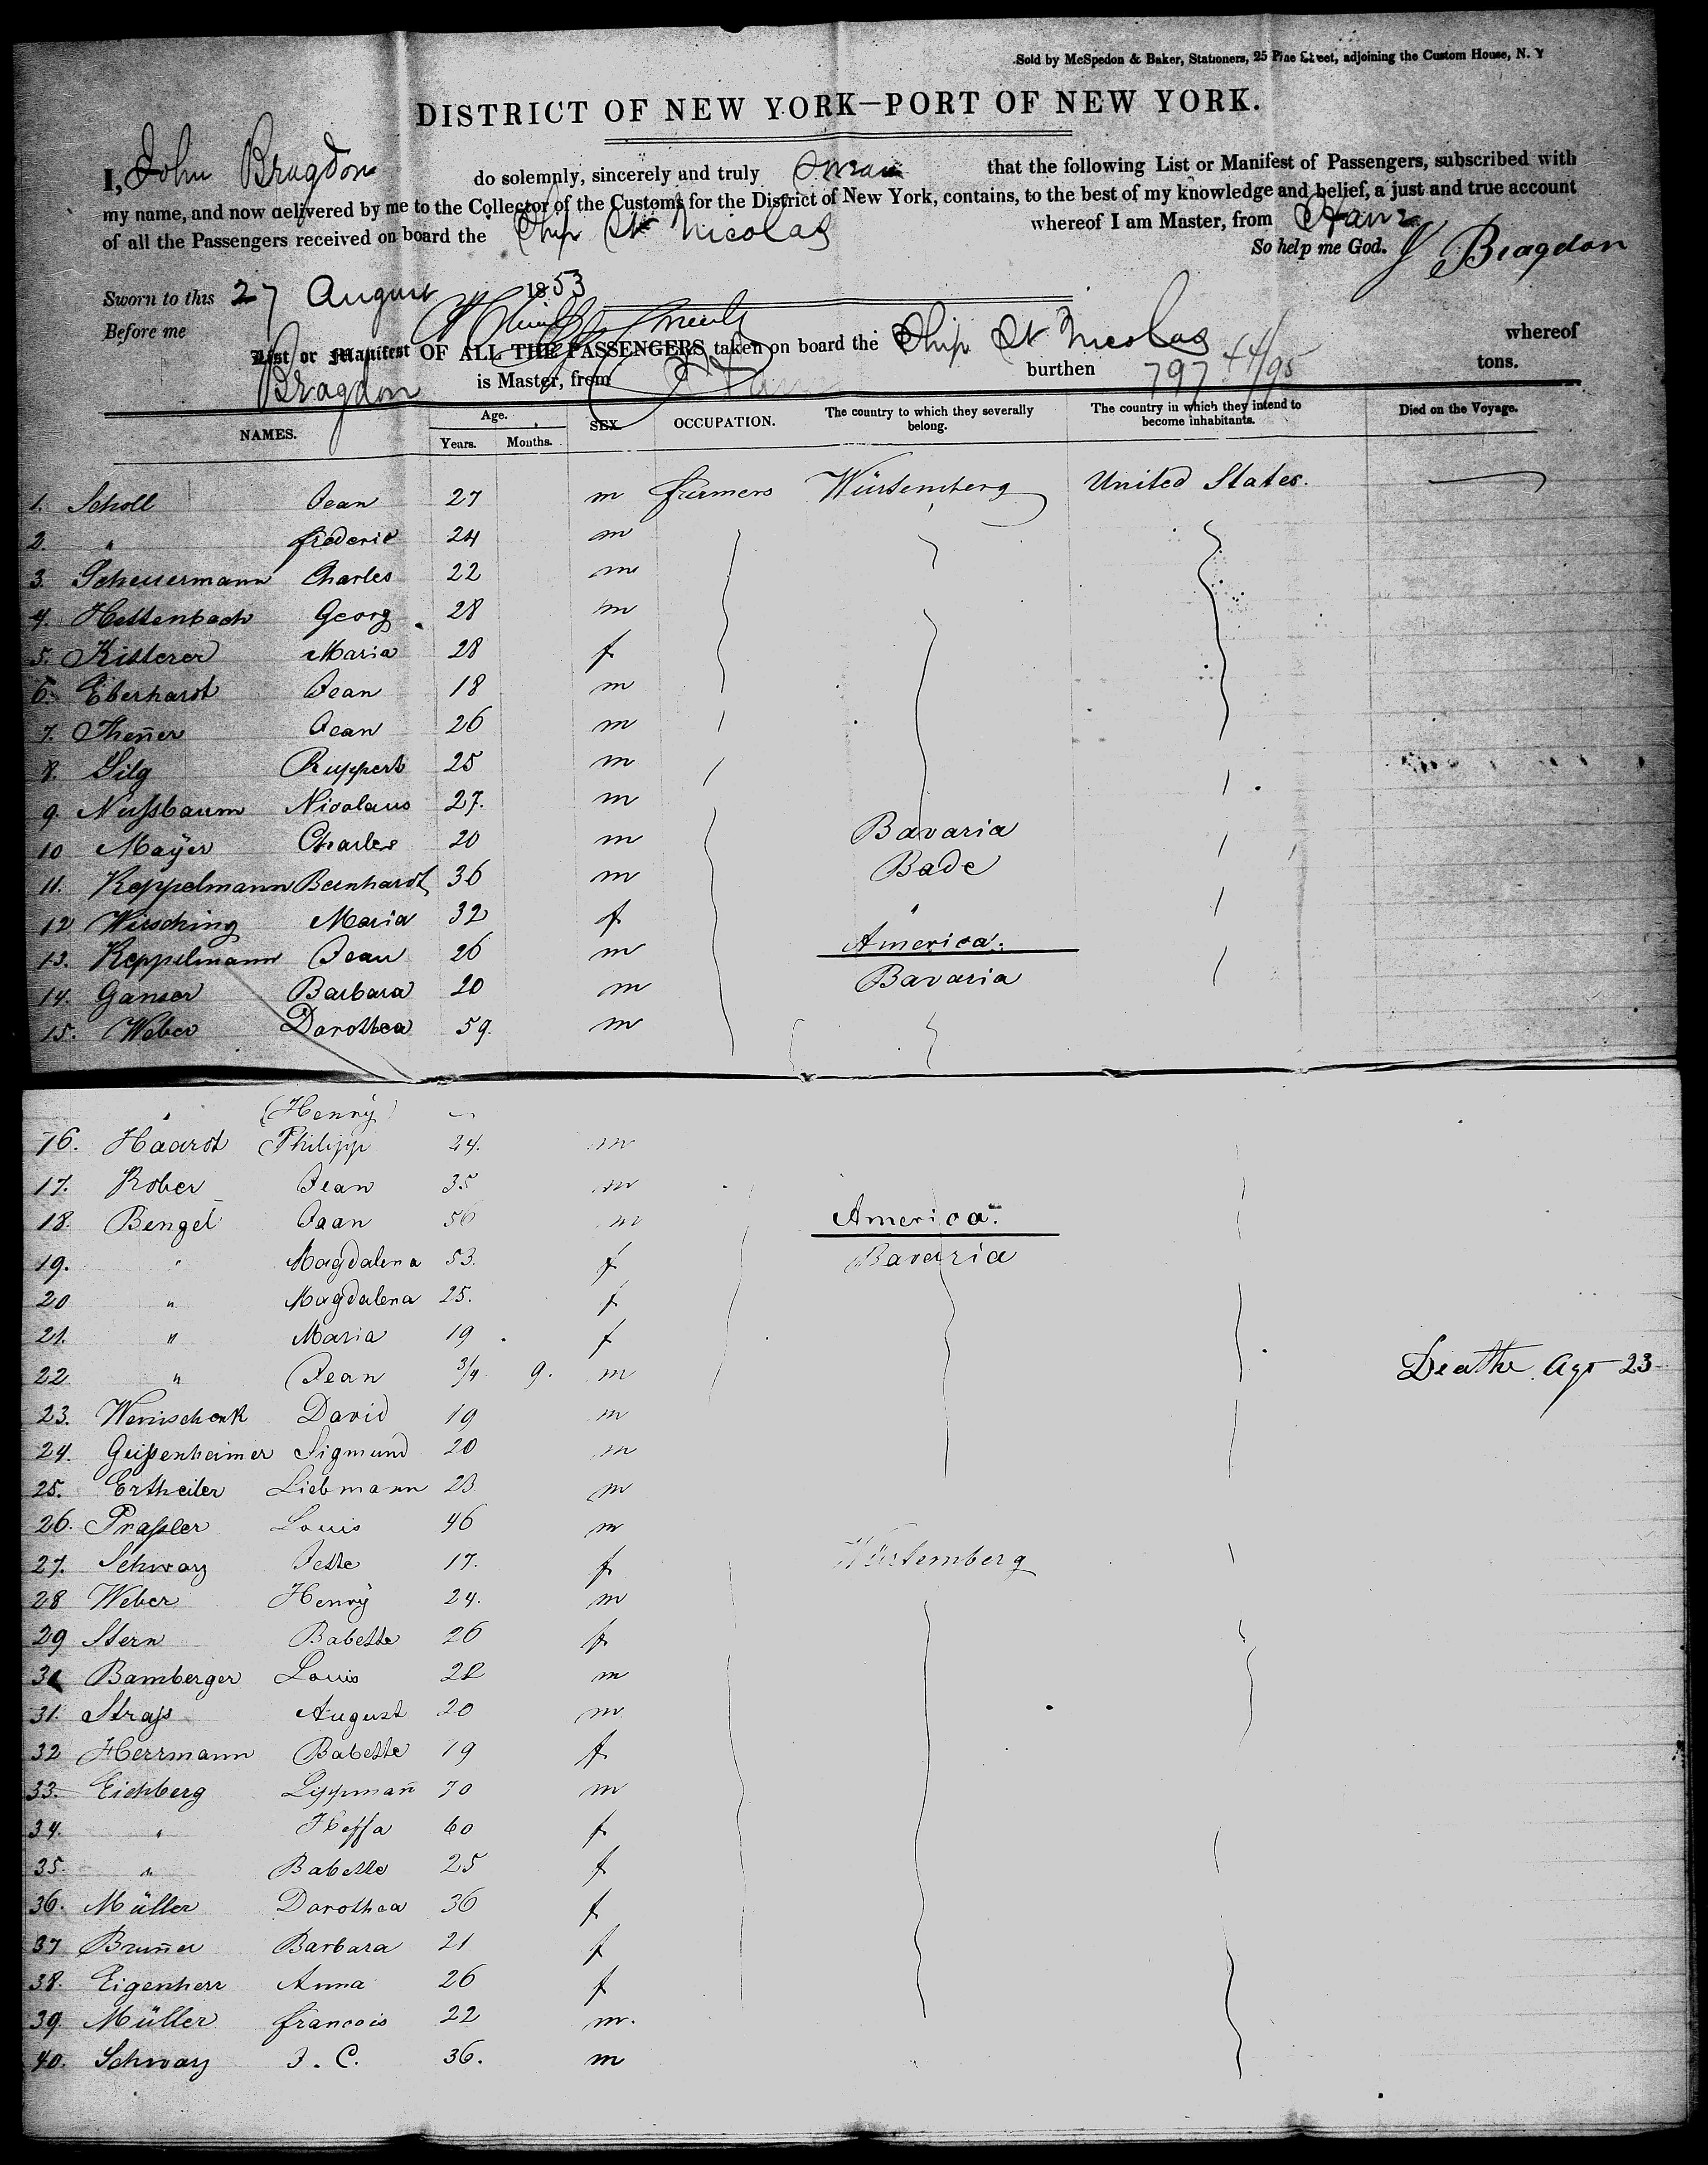 Sold by McSpedon & Baker, Stationers, 25 Pine Street, adjoining the Custom House, N. Y
DISTRICT OF NEW YORK—PORT OF NEW YORK.
I, John Bragdon do solemnly, sincerely and truly swear that the following List or Manifest of Passengers, subscribed with
my name, and now delivered by me to the Collector of the Customs for the District of New York, contains, to the best of my knowledge and belief, a just and true account
of all the Passengers received on board the Ship St Nicolas whereof I am Master, from Havre
So help me God. J Bragdon
Sworn to this 27 August 1853
Before me
List or Manifest OF ALL THE PASSENGERS taken on board the Ship St Nicolas whereof
Bragdon is Master, from Havre burthen 797 44/95 tons.
NAMES. Age. Years. Months. SEX. OCCUPATION. The country to which they severally belong. The country in which they intend to become inhabitants. Died on the Voyage.
1. Scholl Jean 27 m farmers Würtemberg United States.
2. " frederic 24 m
3. Scheuermann Charles 22 m
4. Hettenbach Georg 28 m
5. Kitterer Maria 28 f
6. Eberhardt Jean 18 m
7. Theñer Jean 26 m
8. Gilg Ruppert 25 m
9. Nußbaum Nicolaus 27. m
10 Mayer Charles 20 m Bavaria
11. Keppelmann Bernhardt 36 m Bade
12 Wirsching Maria 32 f "
13. Keppelmann Jean 26 m America.
14. Ganser Barbara 20 m Bavaria
15. Weber Dorothea 59. m
" (Henry)
16. Haardt Philipp 24. m
17. Rober Jean 35 m
18. Bengel Jean 56 m America.
19. " Magdalena 53. f Bavaria
20 " Magdalena 25. f
21. " Maria 19 f
22 " Jean 3/4 9. m Deathe Agt 23
23. Wenschenk David 19 m
24. Geißenheimer Sigmund 20 m
25. Ertheiler Liebmann 23 m
26. Praßler Louis 46 m
27. Schwarz Jette 17. f Würtemberg
28 Weber Henry 24. m
29 Stern Babette 26 f
30 Bamberger Louis 22 m
31. Straß August 20 m
32 Herrmann Babette 19 f
33. Eichberg Lippmañ 70 m
34. " Heffa 60 f
35. " Babette 25 f
36. Müller Dorothea 36 f
37 Bruñer Barbara 21 f
38. Eigenherr Anna 26 f
39. Müller francois 22 m.
40. Schwarz J. C. 36. m